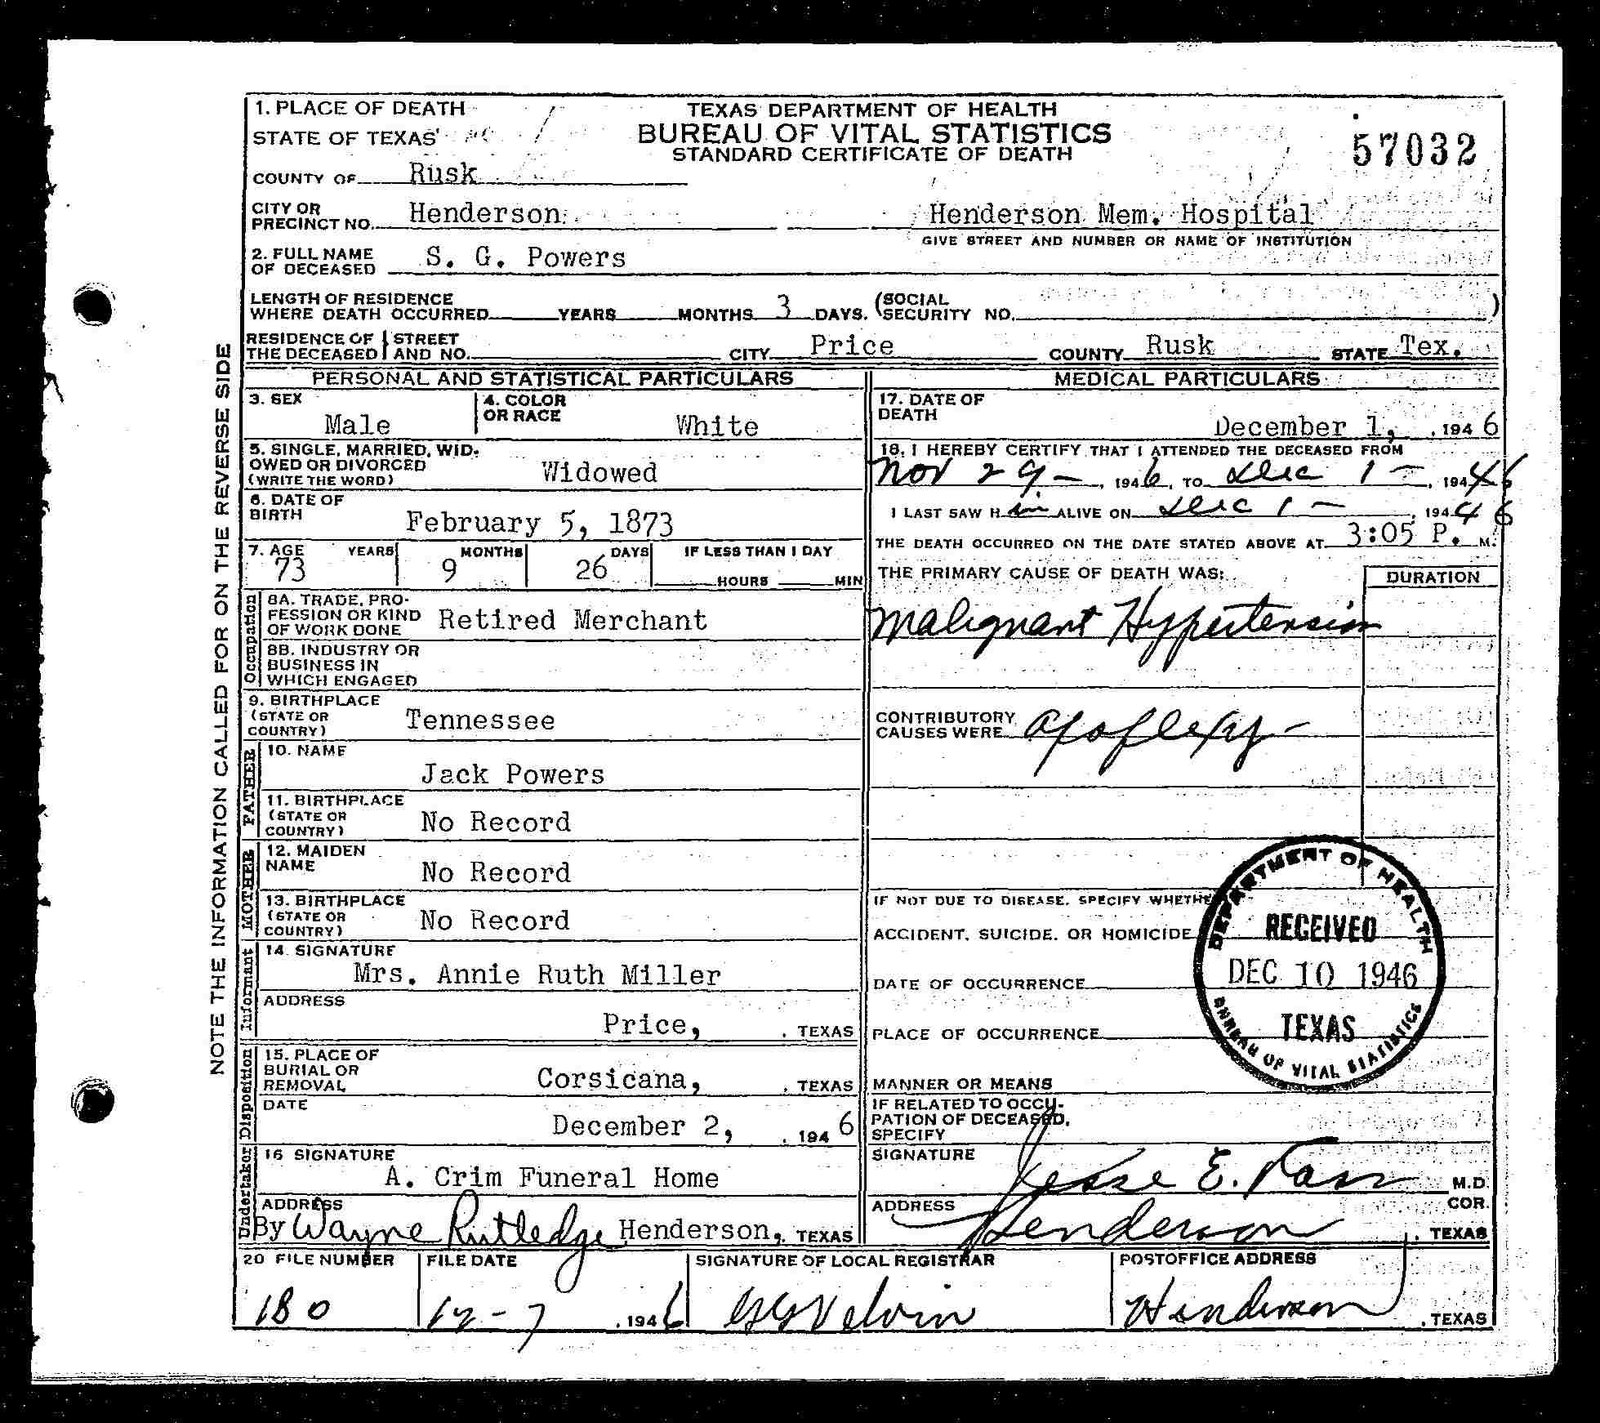 1. PLACE OF DEATH
STATE OF TEXAS
TEXAS DEPARTMENT OF HEALTH
BUREAU OF VITAL STATISTICS
STANDARD CERTIFICATE OF DEATH
57032
COUNTY OF Rusk
CITY OR PRECINCT NO. Henderson Henderson Mem. Hospital
GIVE STREET AND NUMBER OR NAME OF INSTITUTION
2. FULL NAME OF DECEASED S. G. Powers
LENGTH OF RESIDENCE WHERE DEATH OCCURRED YEARS MONTHS 3 DAYS. (SOCIAL SECURITY NO. )
RESIDENCE OF THE DECEASED STREET AND NO. CITY Price COUNTY Rusk STATE Tex.
NOTE THE INFORMATION CALLED FOR ON THE REVERSE SIDE
PERSONAL AND STATISTICAL PARTICULARS
3. SEX Male
4. COLOR OR RACE White
5. SINGLE, MARRIED, WIDOWED OR DIVORCED (WRITE THE WORD) Widowed
6. DATE OF BIRTH February 5, 1873
7. AGE YEARS MONTHS DAYS IF LESS THAN 1 DAY
73 9 26 HOURS MIN
Occupation
8A. TRADE, PROFESSION OR KIND OF WORK DONE Retired Merchant
8B. INDUSTRY OR BUSINESS IN WHICH ENGAGED
9. BIRTHPLACE (STATE OR COUNTRY) Tennessee
FATHER
10. NAME Jack Powers
11. BIRTHPLACE (STATE OR COUNTRY) No Record
MOTHER
12. MAIDEN NAME No Record
13. BIRTHPLACE (STATE OR COUNTRY) No Record
Informant
14 SIGNATURE Mrs. Annie Ruth Miller
ADDRESS Price, . TEXAS
Disposition
15. PLACE OF BURIAL OR REMOVAL Corsicana, . TEXAS
DATE December 2, , 1946
Undertaker
16 SIGNATURE A. Crim Funeral Home
ADDRESS By Wayne Rutledge Henderson, . TEXAS
MEDICAL PARTICULARS
17. DATE OF DEATH December 1, , 1946
18. I HEREBY CERTIFY THAT I ATTENDED THE DECEASED FROM
Nov 29 - , 1946, TO Dec 1 - , 19446
I LAST SAW H im ALIVE ON Dec 1 - , 19446
THE DEATH OCCURRED ON THE DATE STATED ABOVE AT 3:05 P. M.
THE PRIMARY CAUSE OF DEATH WAS: DURATION
Malignant Hypertension
CONTRIBUTORY CAUSES WERE apoplexy -
IF NOT DUE TO DISEASE, SPECIFY WHETHE
ACCIDENT, SUICIDE, OR HOMICIDE
DATE OF OCCURRENCE
PLACE OF OCCURRENCE
MANNER OR MEANS
DEPARTMENT OF HEALTH
RECEIVED
DEC 10 1946
TEXAS
BUREAU OF VITAL STATISTICS
IF RELATED TO OCCUPATION OF DECEASED, SPECIFY
SIGNATURE Jesse E. M.D.
COR.
ADDRESS Henderson . TEXAS
20 FILE NUMBER FILE DATE SIGNATURE OF LOCAL REGISTRAR POSTOFFICE ADDRESS
180 12-7 , 1946 Henderson , TEXAS